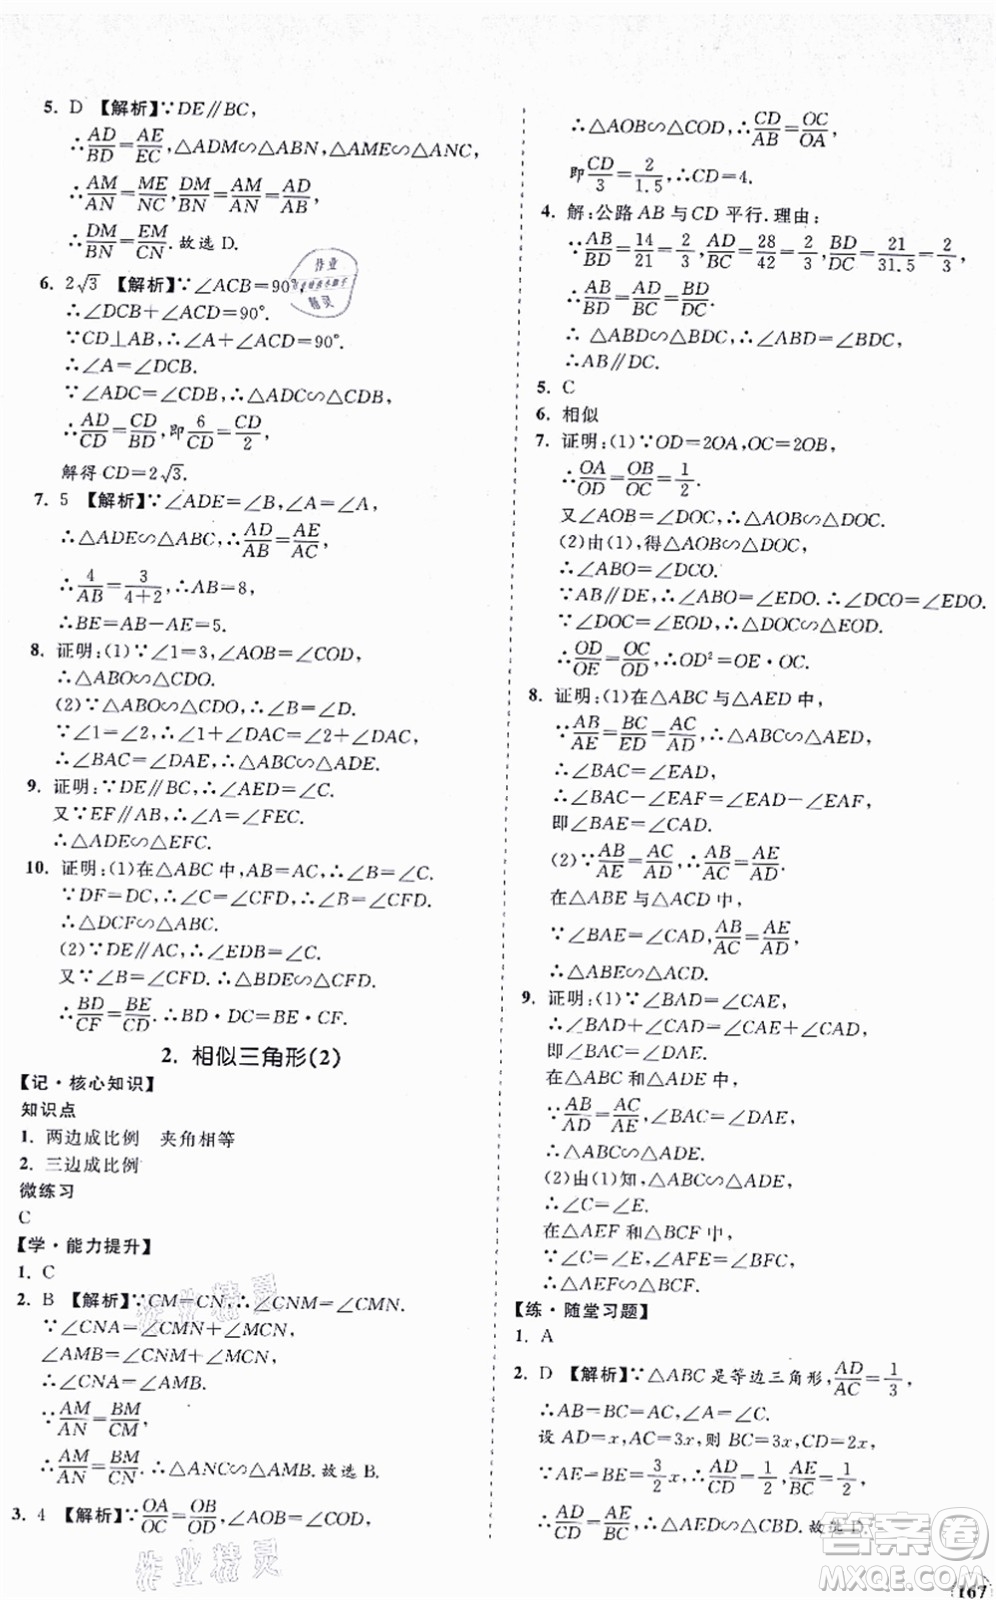 5. D 【解析】∵DE∥BC,
∴AD/BD=AE/EC,△ADM∽△ABN,△AME∽△ANC,
∴AM/AN=ME/NC,DM/BN=AM/AN=AD/AB,
∴DM/BN=EM/CN.故选D.
6. 2√3 【解析】∵∠ACB=90°,
∴∠DCB+∠ACD=90°.
∵CD⊥AB,∴∠A+∠ACD=90°.
∴∠A=∠DCB.
又∵∠ADC=∠CDB,∴△ADC∽△CDB.
∴AD/CD=CD/BD,即6/CD=CD/2,
解得CD=2√3.
7. 5 【解析】∵∠ADE=∠B,∠A=∠A,
∴△ADE∽△ABC,∴AD/AB=AE/AC,
∴4/AB=3/(4+2),∴AB=8,
∴BE=AB-AE=5.
8. 证明:(1)∵∠1=3,∠AOB=∠COD,
∴△ABO∽△CDO.
(2)∵△ABO∽△CDO,∴∠B=∠D.
∵∠1=∠2,∴∠1+∠DAC=∠2+∠DAC,
∴∠BAC=∠DAE,∴△ABC∽△ADE.
9. 证明:∵DE∥BC,∴∠AED=∠C.
又∵EF∥AB,∴∠A=∠FEC.
∴△ADE∽△EFC.
10. 证明:(1)在△ABC中,AB=AC,∴∠B=∠C.
∵DF=DC,∴∠C=∠CFD,
∴△DCF∽△ABC.
(2)∵DE∥AC,∴∠EDB=∠C.
又∵∠B=∠C=∠CFD.∴△BDE∽△CFD.
∴BD/CF=BE/CD,∴BD·DC=BE·CF.
2. 相似三角形(2)
【记·核心知识】
知识点
1. 两边成比例 夹角相等
2. 三边成比例
微练习
C
【学·能力提升】
1. C
2. B 【解析】∵CM=CN,∴∠CNM=∠CMN.
∵∠CNA=∠CMN+∠MCN,
∠AMB=∠CNM+∠MCN,
∴∠CNA=∠AMB.
∵AM/AN=BM/CM,
∴AM/AN=BM/CN,∴△ANC∽△AMB.故选B.
3. 4 【解析】∵OA/OC=OB/OD,∠AOB=∠COD,
∴△AOB∽△COD,∴CD/AB=OC/OA,
即CD/3=2/1.5,∴CD=4.
4. 解:公路AB与CD平行.理由:
∵AB/BD=14/21=2/3,AD/BC=28/42=2/3,BD/DC=21/31.5=2/3,
∴AB/BD=AD/BC=BD/DC.
∴△ABD∽△BDC,∴∠ABD=∠BDC,
∴AB∥DC.
5. C
6. 相似
7. 证明:(1)∵OD=2OA,OC=2OB,
∴OA/OD=OB/OC=1/2.
又∠AOB=∠DOC,∴△AOB∽△DOC.
(2)由(1),得△AOB∽△DOC.
∴∠ABO=∠DCO.
∵AB∥DE,∴∠ABO=∠EDO,∴∠DCO=∠EDO.
∵∠DOC=∠EOD,∴△DOC∽△EOD.
∴OD/OE=OC/OD,∴OD²=OE·OC.
8. 证明:(1)在△ABC与△AED中,
∵AB/AE=BC/ED=AC/AD,∴△ABC∽△AED,
∴∠BAC=∠EAD,
∴∠BAC-∠EAF=∠EAD-∠EAF,
即∠BAE=∠CAD.
(2)∵AB/AE=AC/AD,∴AB/AC=AE/AD.
在△ABE与△ACD中,
∵∠BAE=∠CAD,AB/AC=AE/AD,
∴△ABE∽△ACD.
9. 证明:(1)∵∠BAD=∠CAE,
∴∠BAD+∠CAD=∠CAE+∠CAD,
即∠BAC=∠DAE.
在△ABC和△ADE中,
∵AB/AD=AC/AE,∠BAC=∠DAE,
∴△ABC∽△ADE.
(2)由(1)知,△ABC∽△ADE,
∴∠C=∠E.
在△AEF和△BCF中,
∵∠C=∠E,∠AFE=∠BFC,
∴△AEF∽△BCF.
【练·随堂习题】
1. A
2. D 【解析】∵△ABC是等边三角形,AD/AC=1/3,
∴AB=BC=AC,∠A=∠C.
设AD=x,AC=3x,则BC=3x,CD=2x,
∵AE=BE=3/2x,∴AD/CD=1/2,AE/BC=1/2,
∴AD/CD=AE/BC,∴△AED∽△CBD.故选D.
作业
精灵
作业精灵
作业精灵
答案卷
MXQE.COM
167